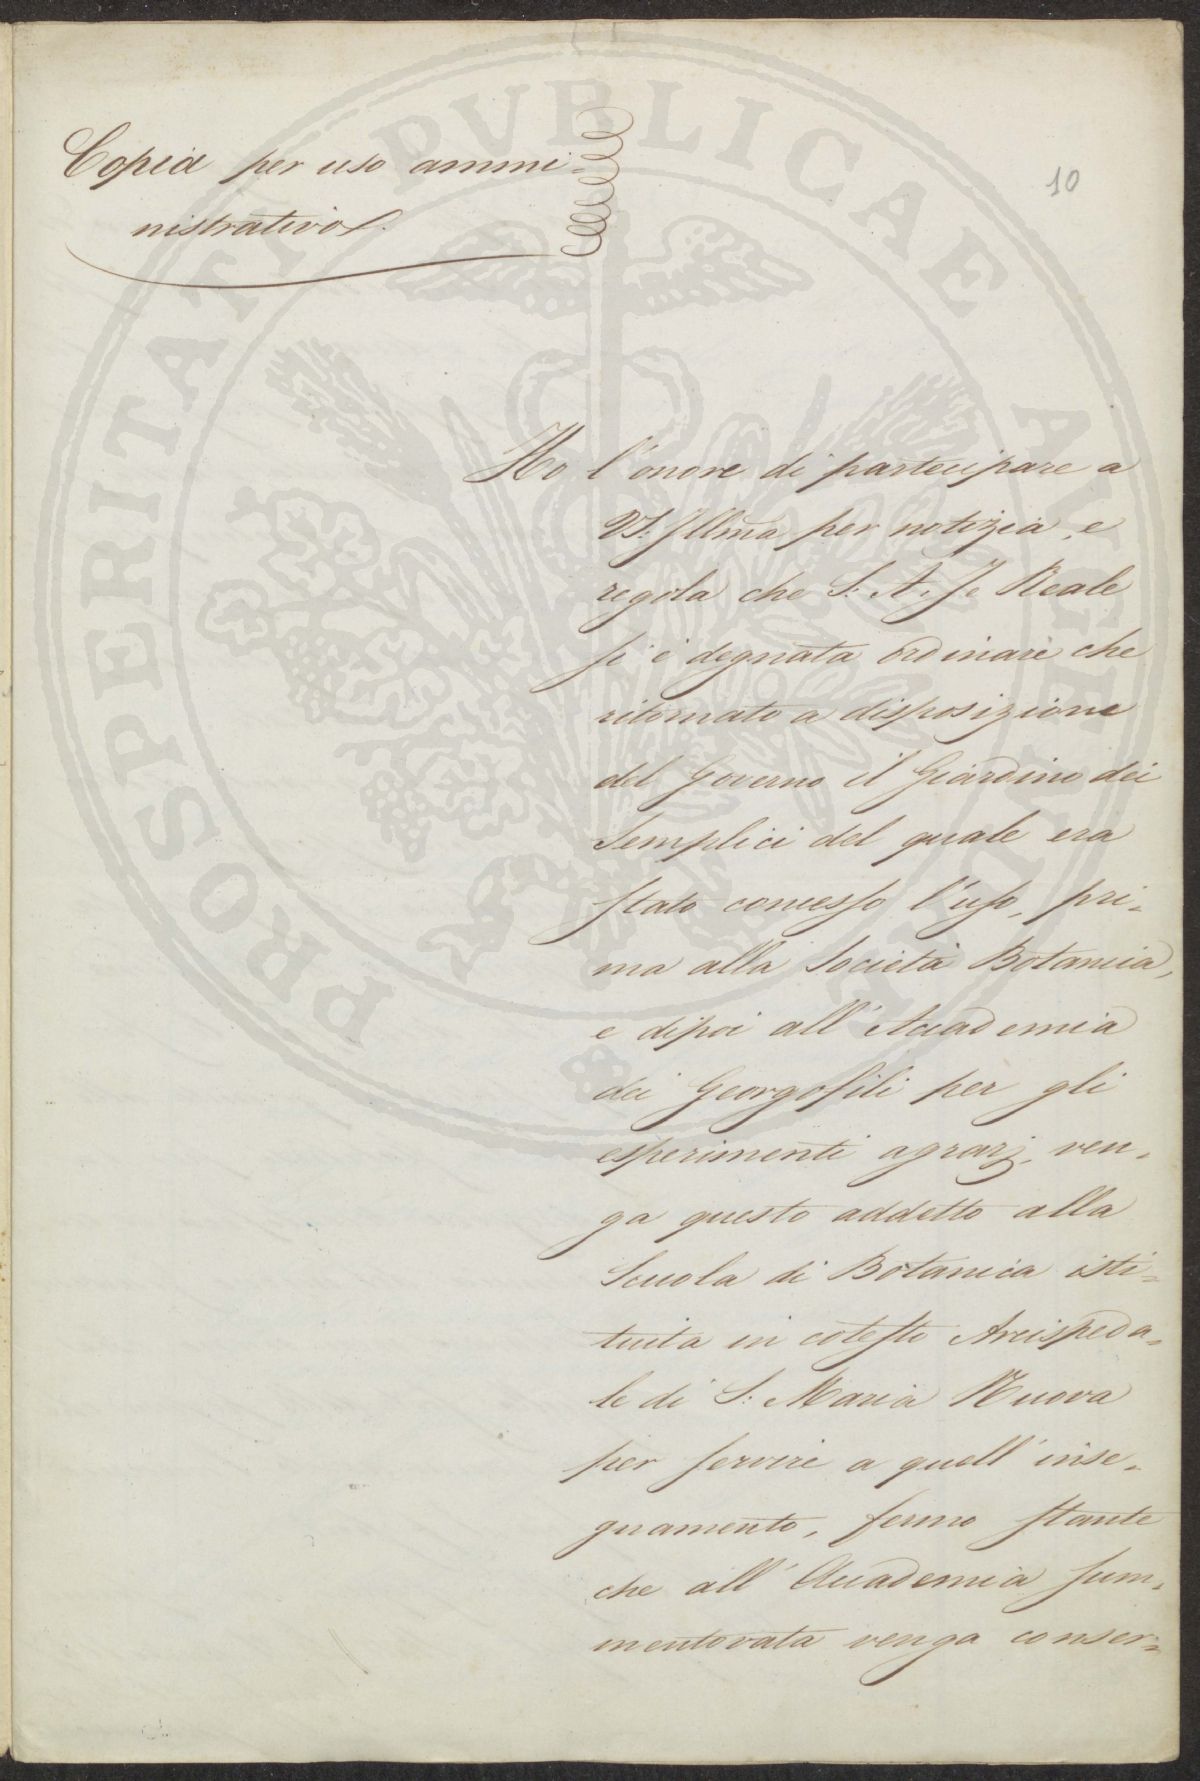 10
Copia per uso ammi-
nistrativo.
Ho l'onore di partecipare a
VS. Illma per notizia, e
regola che S. A. I. e Reale
si è degnata ordinare che
ritornato a disposizione
del Governo il Giardino dei
Semplici del quale era
stato concesso l'uso, pri-
ma alla Società Botanica,
e dipoi all'Accademia
dei Georgofili per gli
esperimenti agrarj, ven-
ga questo addetto alla
Scuola di Botanica isti-
tuita in cotesto Arcispeda-
le di S: Maria Nuova
per servire a quell'inse-
gnamento, fermo stante
che all'Accademia sum-
mentovata venga conser-
PROSPERITATI PVBLICAE AVGENDAE